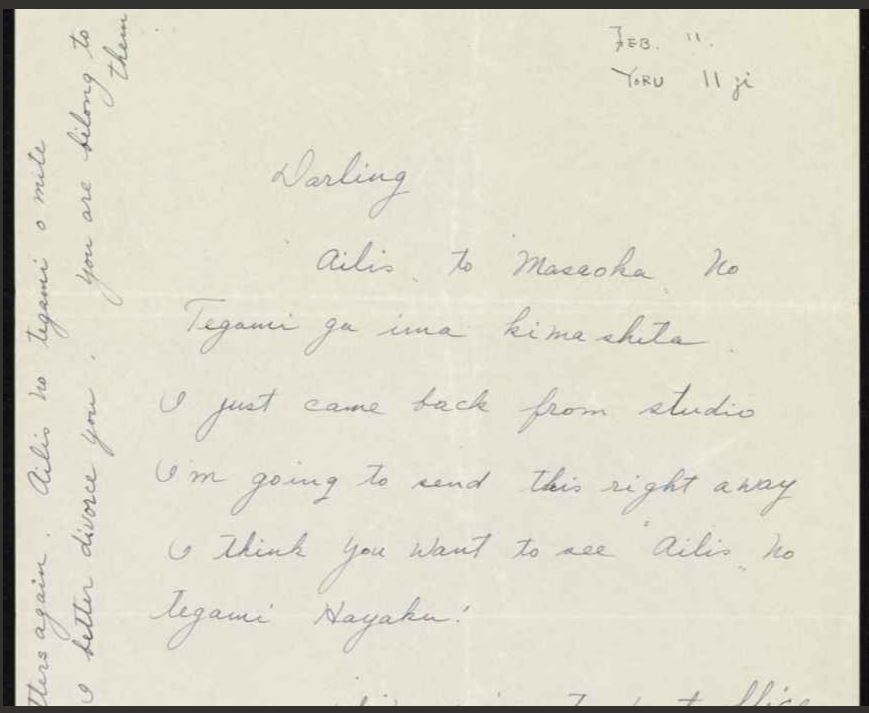 FEB. 11.
YORU 11 ji
Darling
Ailis to Masaoka no
Tegami ga ima kimashita.
I just came back from studio
I'm going to send this right away
I think you want to see "Ailis" no
tegami Hayaku!
tters again. Ailis no tegami o mite
I better divorce you. you are belong to
them